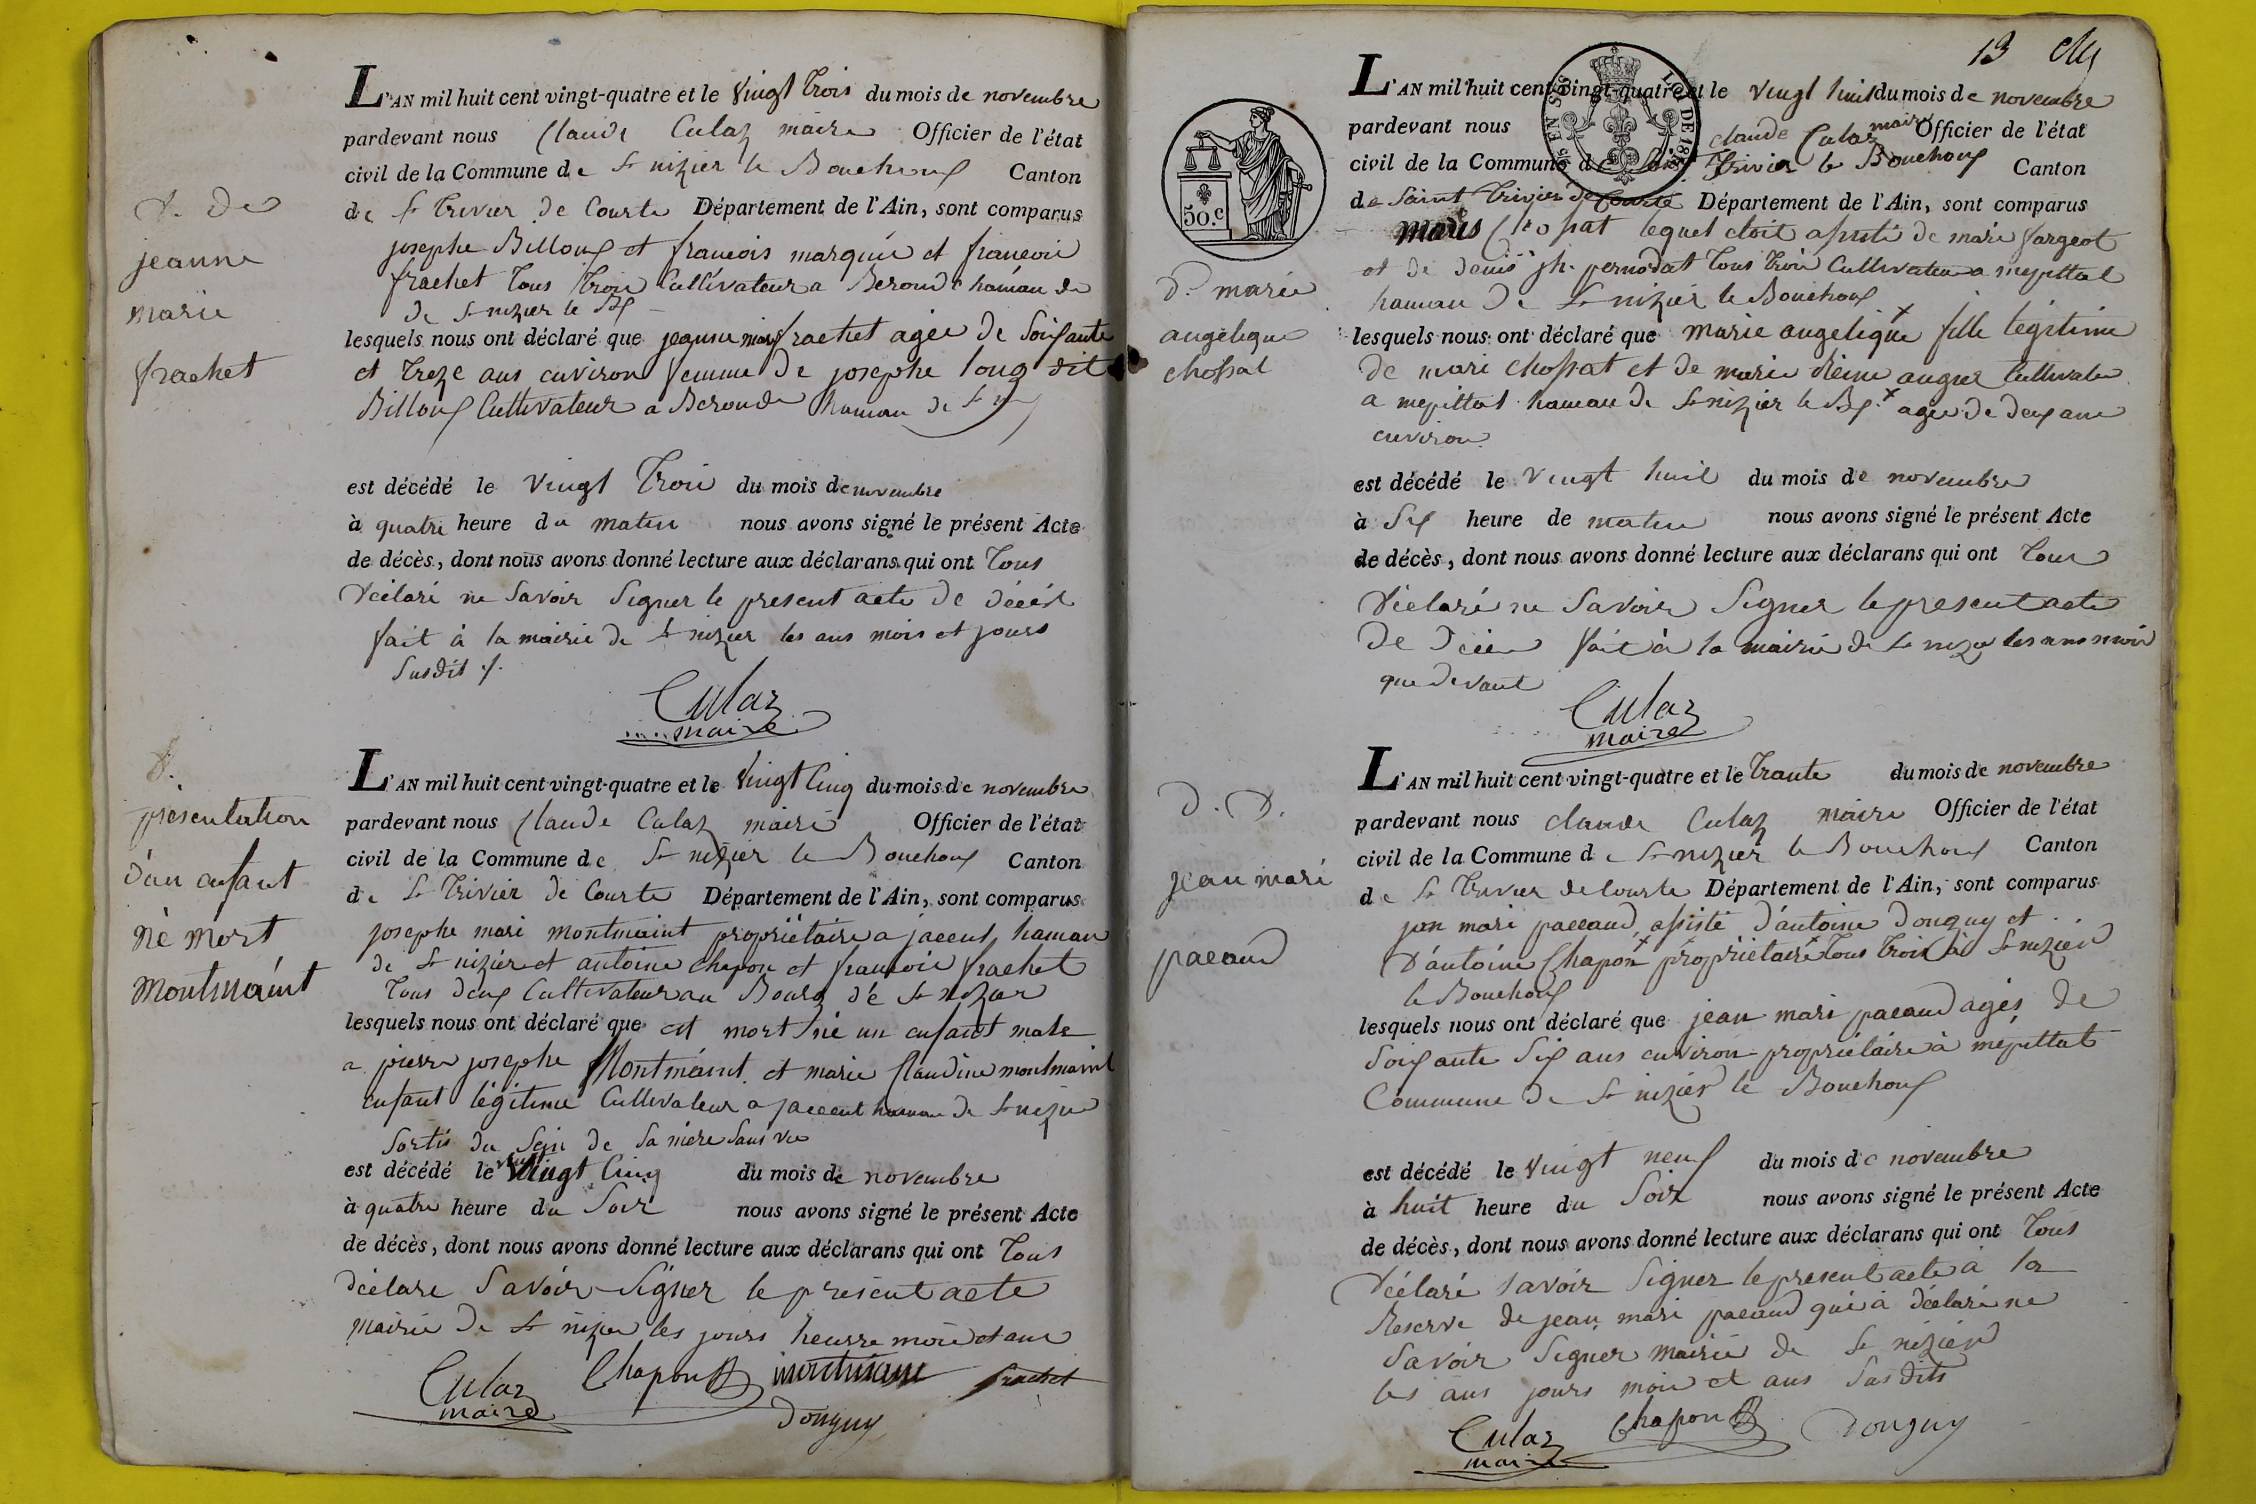 D. De
jeanne
marie
frachet
L'AN mil huit cent vingt-quatre et le vingt trois du mois de novembre
pardevant nous Claude Culaz maire Officier de l'état
civil de la Commune de St nizier le Bouchoux Canton
de St trivier de Courte Département de l'Ain, sont comparus
josephe Billoux et francois marquis et francois
frachet tous trois Cultivateur a Beroude hamau de
de St nizier le Bx
lesquels nous ont déclaré que jeanne marie frachet agée de Soixante
et treze ans environ femme de josephe long dit
Billoux Cultivateur a Beroude hamau de St n
est décédé le vingt trois du mois de novembre
à quatre heure du matin nous avons signé le présent Acte
de décès, dont nous avons donné lecture aux déclarans qui ont tous
déclaré ne Savoir Signer le present acte de décès
fait à la mairie de St nizier les ans mois et jours
Susdit
Culaz
maire
D.
présentation
d'un enfant
né mort
Montmaint
L'AN mil huit cent vingt-quatre et le vingt Cinq du mois de novembre
pardevant nous Claude Culaz maire Officier de l'état
civil de la Commune de St nizier le Bouchoux Canton
de St trivier de Courte Département de l'Ain, sont comparus
josephe mari montmaint propriètaire a jacent hamau
de St nizier et antoine chapon et francois frachet
tous deux Cultivateur au Bourg de St nizier
lesquels nous ont déclaré que est mort né un enfant male
a pierre josephe Montmaint et marie Claudine montmaint
enfant légitime Cultivateur a jaccent hamau de St nizier
Sortis du Sein de Sa mère Sans vie
est décédé le vingt Cinq du mois de novembre
à quatre heure du Soir nous avons signé le présent Acte
de décès, dont nous avons donné lecture aux déclarans qui ont tous
déclare Savoir Signer le présent acte
mairie de St nizier les jours heurre mois et ans
Culaz Chapon montmaint frachet
maire Donguy
13
L'AN mil huit cent vingt-quatre et le vingt huit du mois de novembre
pardevant nous claude Culaz maire Officier de l'état
civil de la Commune de Saint Trivier le Bouchoux Canton
de Saint Trivier de Courte Département de l'Ain, sont comparus
50.c
maris Chossat lequel étoit assisté de mari fargeot
et de denis jh. pernodat tous trois Cultivateur a mepittat
hamau de St nizier le Bouchoux
D. marie
angèlique
chossat
lesquels nous ont déclaré que marie angelique fille légitime
de mari chossat et de marie Reine auger Cultivateur
a mepittat hameau de St nizier le Bx agée de deux ans
environ
est décédé le vingt huit du mois de novembre
à Six heure de matin nous avons signé le présent Acte
de décès, dont nous avons donné lecture aux déclarans qui ont tous
déclaré ne Savoir Signer le present acte
de décès fait à la mairie de St nizier les ans mois
que devant
Culaz
maire
D. D.
jean mari
pacaud
L'AN mil huit cent vingt-quatre et le trante du mois de novembre
pardevant nous claude Culaz maire Officier de l'état
civil de la Commune de St nizier le Bouchoux Canton
de St trivier de Courte Département de l'Ain, sont comparus
jean mari paccaud assisté d'antoine Donguy et
d'antoine Chapon propriètaire tous trois à St nizier
le Bouchoux
lesquels nous ont déclaré que jean mari pacaud agés de
Soixante Six ans environ propriétaire à mépittat
Commune de St nizier le Bouchoux
est décédé le vingt neuf du mois de novembre
à huit heure du Soir nous avons signé le présent Acte
de décès, dont nous avons donné lecture aux déclarans qui ont tous
déclaré savoir Signer le present acte à la
Reserve de jean mari pacaud qui à déclaré ne
Savoir Signer mairie de St nizier
les ans jours mois et ans Susdits
Culaz Chapon Donguy
maire